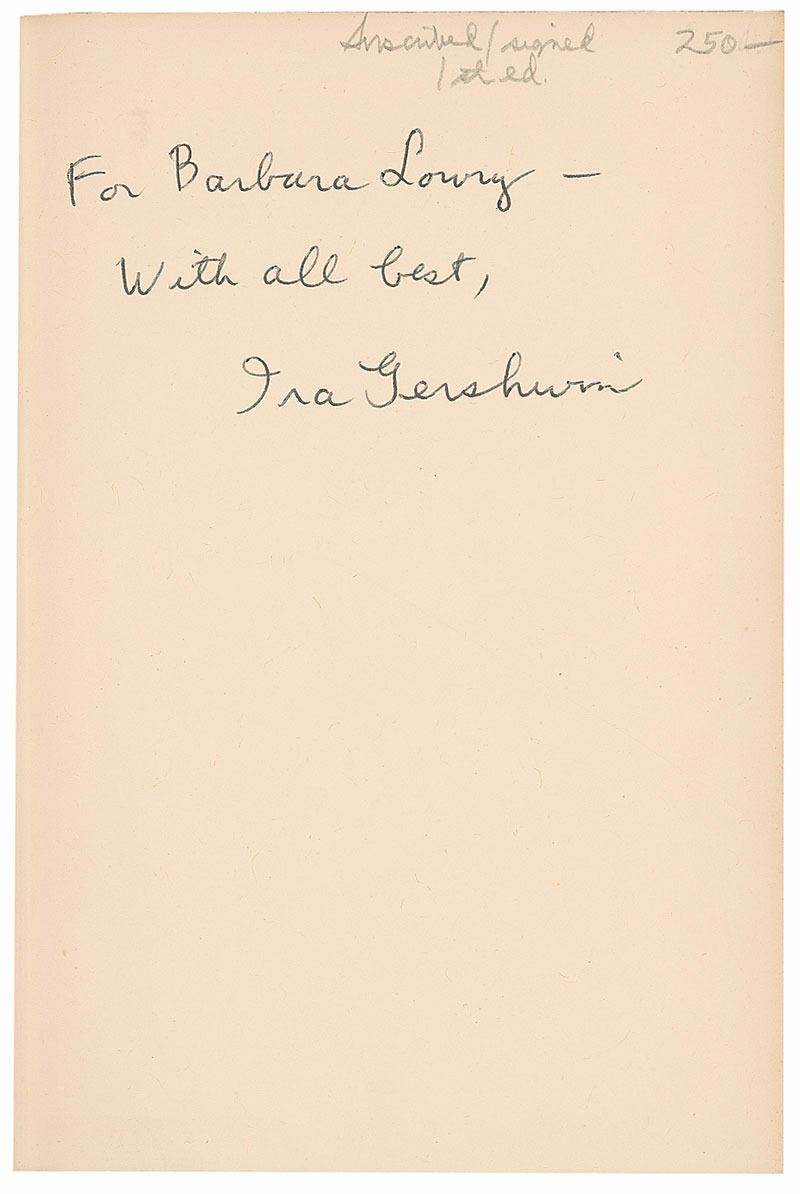 Inscribed/signed 250—
1st ed.
For Barbara Lowry —
With all best,
Ira Gershwin